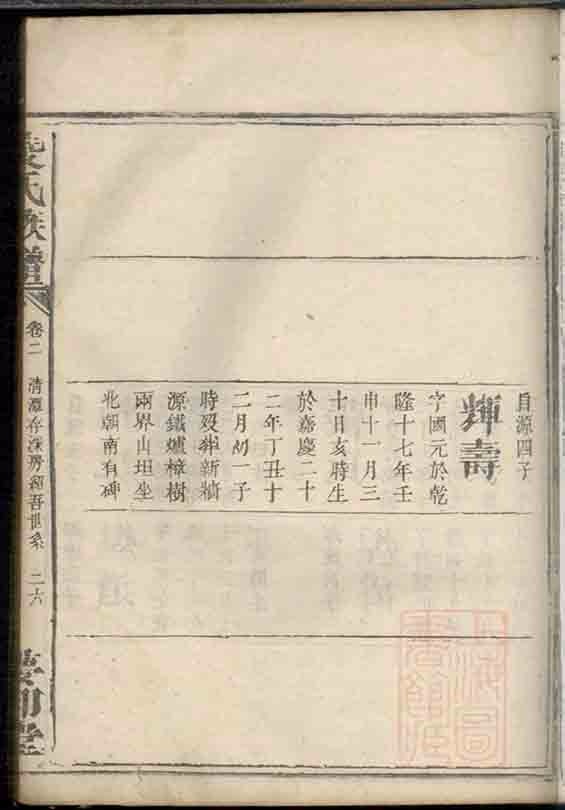 自源四子
輝壽
字國元於乾
隆十七年壬
申十一月三
十日亥時生
於嘉慶二十
二年丁丑十
二月初一子
時歿葬新嶺
源鐵爐樟樹
兩界山坦坐
北朝南有碑
氏族譜
卷二
清潭存深房紹吾世系
二六
上海圖
書館藏